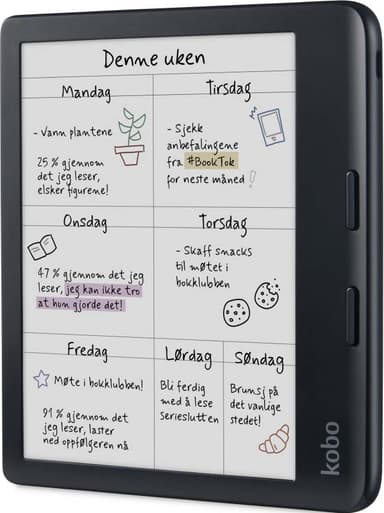 Denne uken
Mandag
- Vann plantene
25 % gjennom
det jeg leser,
elsker figurene!
Tirsdag
- Sjekk
anbefalingene
fra #BookTok
for neste måned!
Onsdag
47 % gjennom det jeg
leser, jeg kan ikke tro
at hun gjorde det!
Torsdag
- Skaff smacks
til møtet i
bokklubben!
Fredag
Møte i bokklubben!
91 % gjennom det
jeg leser, laster
ned oppfølgeren nå
Lørdag
Bli ferdig
med å lese
serieslutten
Søndag
Brunsj på
det vanlige
stedet!
kobo